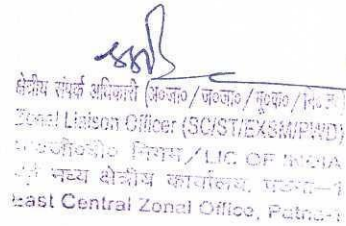 क्षेत्रीय संपर्क अधिकारी (अ०जा०/ज०जा०/भू०पू०/नि०
Zonal Liaison Officer (SC/ST/EXSM/PWD)
निगम/LIC OF INDIA
मध्य क्षेत्रीय कार्यालय, पटना-1
East Central Zonal Office, Patna-1